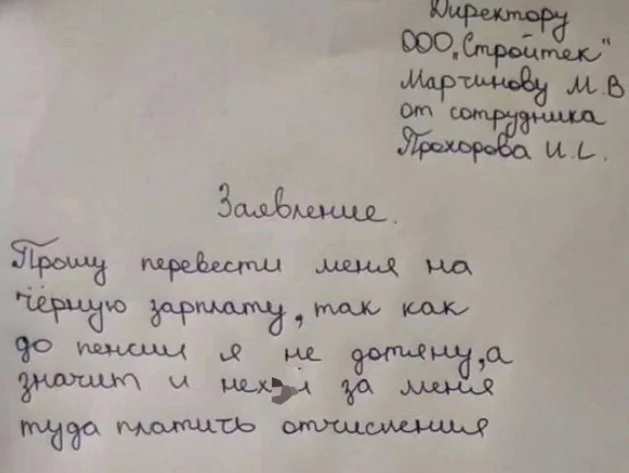 Директору
ООО "Стройтек"
Марчинову М.В
от сотрудника
Прохорова И.С.
Заявление.
Прошу перевести меня на
чёрную зарплату, так как
до пенсии я не дотяну, а
значит и за меня
туда платить отчисления